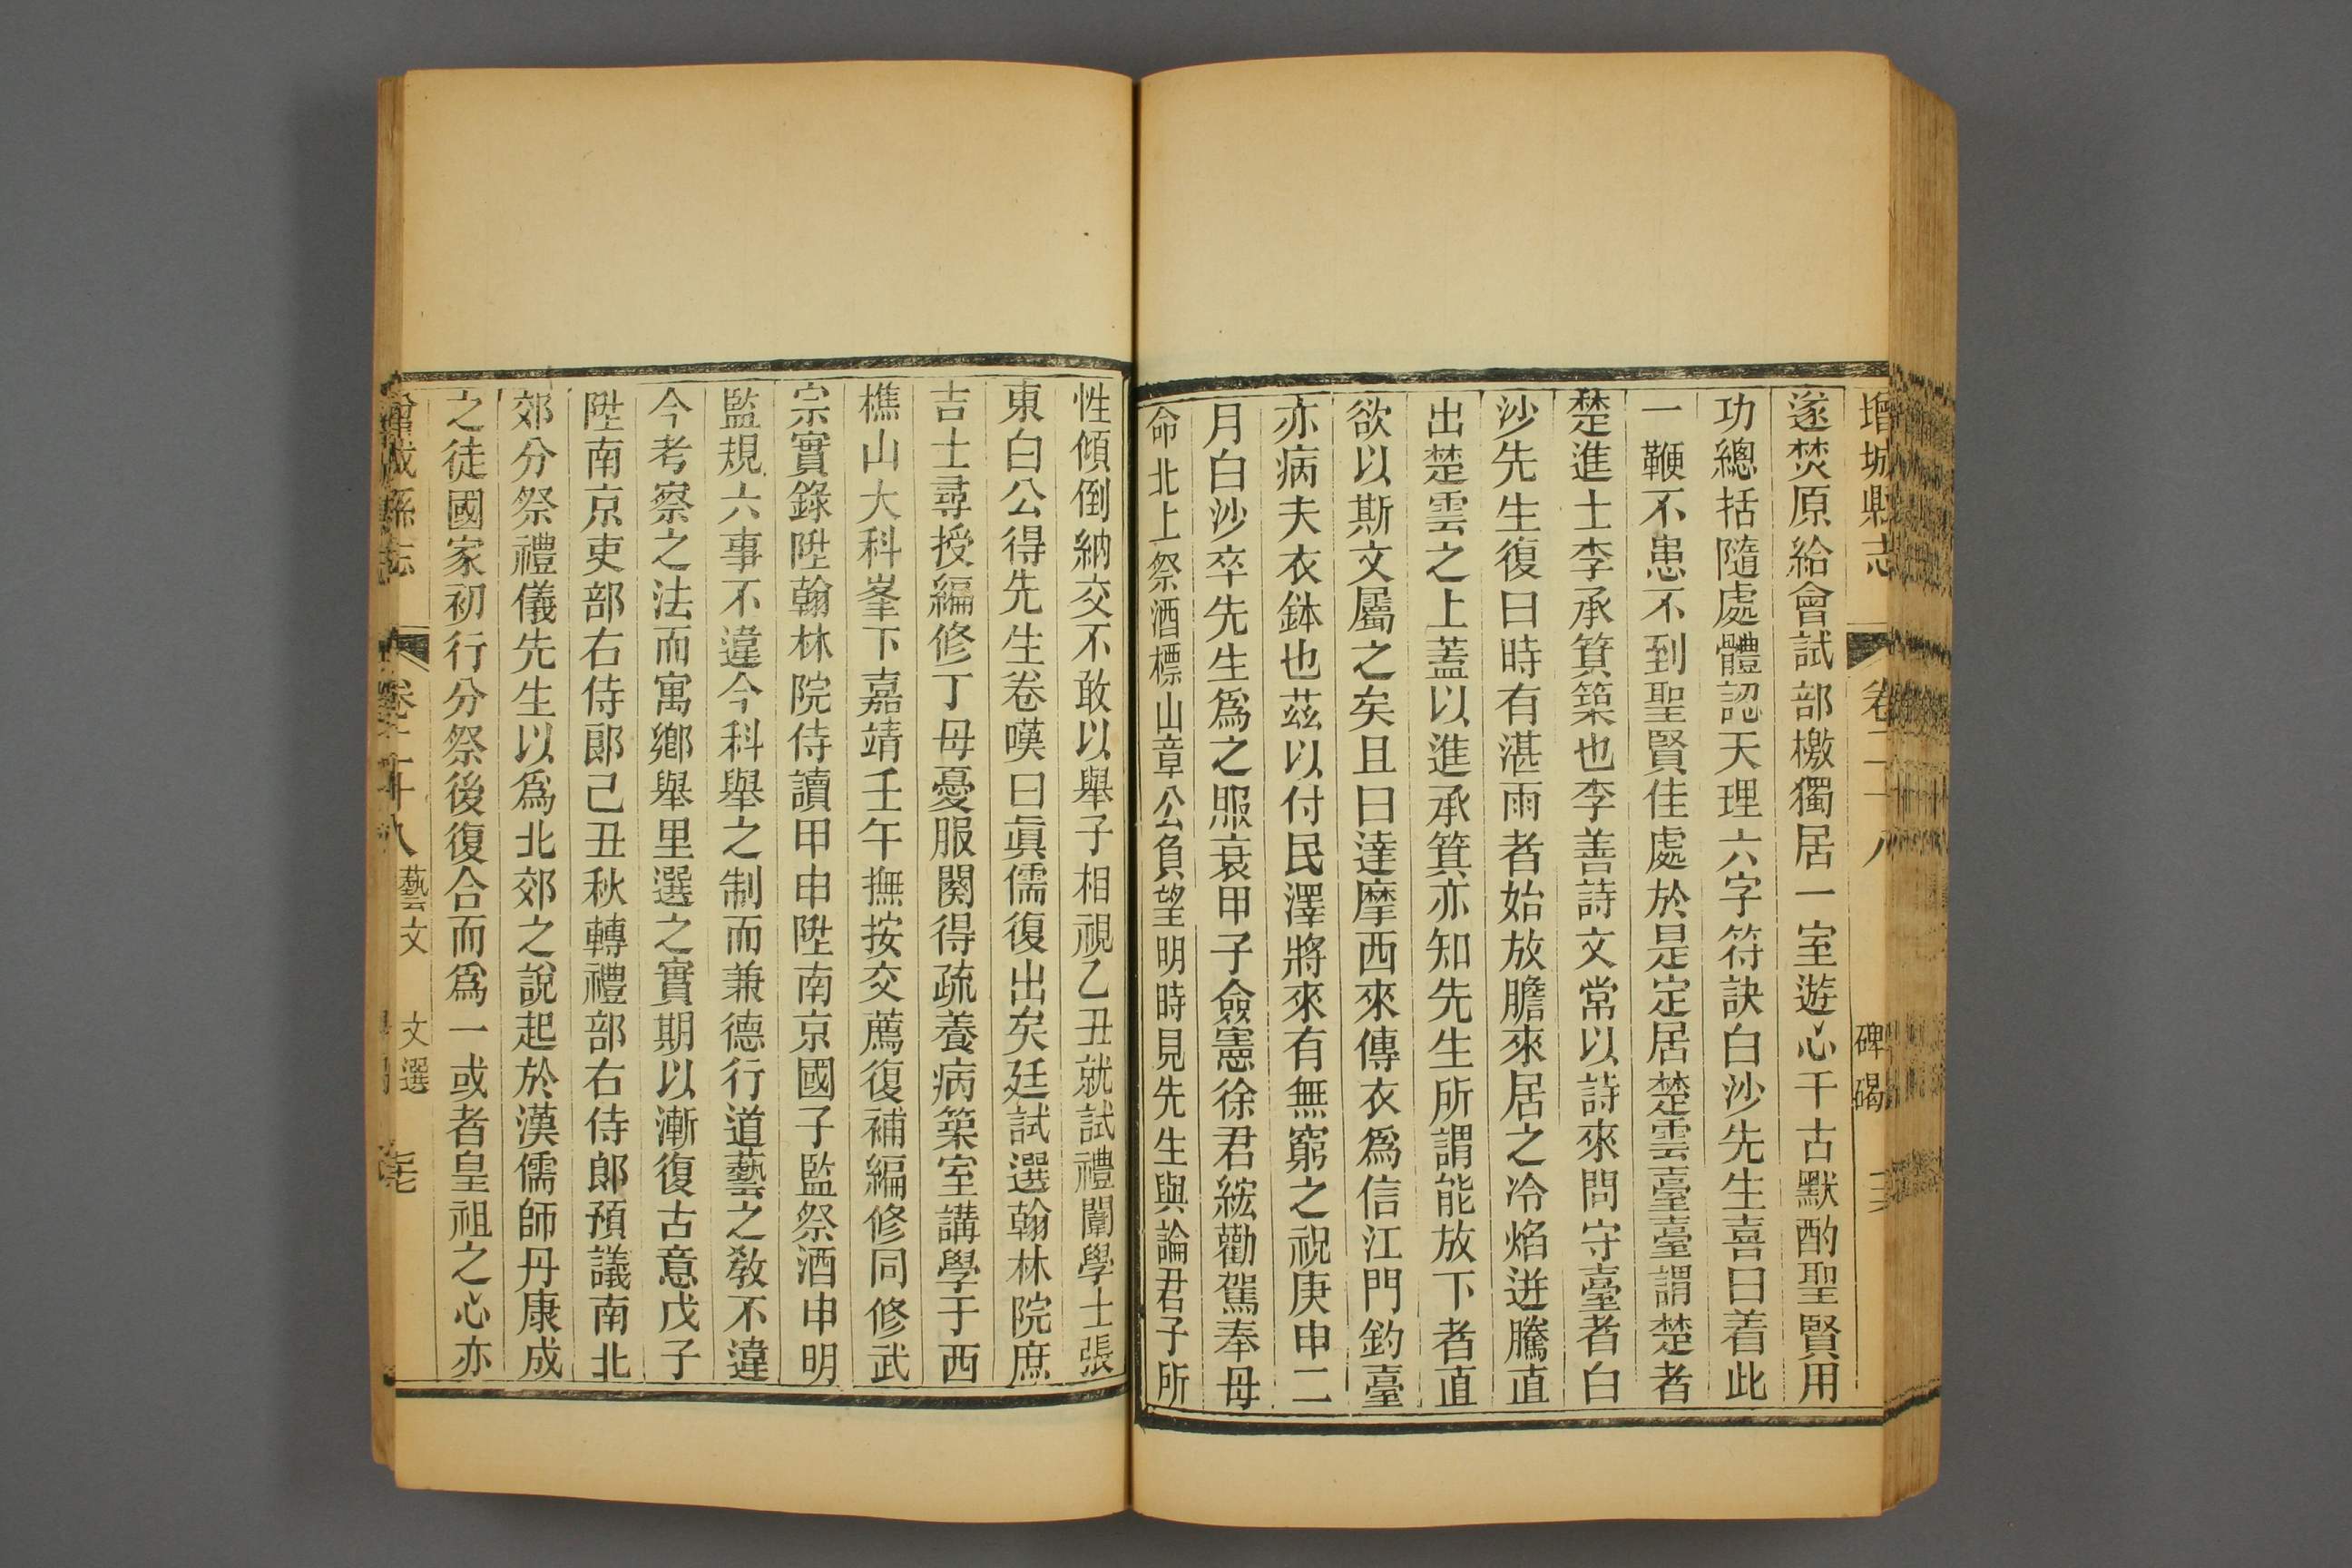 增城縣志 卷二十八 碑碣
遂焚原給會試部檄獨居一室遊心千古默酌聖賢用
功總括隨處體認天理六字符訣白沙先生喜曰着此
一鞭不患不到聖賢佳處於是定居楚雲臺臺謂楚者
楚進士李承箕築也李善詩文常以詩來問守臺者白
沙先生復曰時有湛雨者始放膽來居之冷焰迸騰直
出楚雲之上蓋以進承箕亦知先生所謂能放下者直
欲以斯文屬之矣且曰達摩西來傳衣爲信江門釣臺
亦病夫衣鉢也茲以付民澤將來有無窮之祝庚申二
月白沙卒先生爲之服衰甲子僉憲徐君紘勸駕奉母
命北上祭酒標山章公負望明時見先生與論君子所
性傾倒納交不敢以舉子相視乙丑就試禮闈學士張
東白公得先生卷嘆曰眞儒復出矣廷試選翰林院庶
吉士尋授編修丁母憂服闋得疏養病築室講學于西
樵山大科峯下嘉靖壬午撫按交薦復補編修同修武
宗實錄陞翰林院侍讀甲申陞南京國子監祭酒申明
監規六事不違今科舉之制而兼德行道藝之教不違
今考察之法而寓鄉舉里選之實期以漸復古意戊子
陞南京吏部右侍郞己丑秋轉禮部右侍郎預議南北
郊分祭禮儀先生以爲北郊之說起於漢儒師丹康成
之徒國家初行分祭後復合而爲一或者皇祖之心亦
增城縣志 卷二十八 藝文 文選